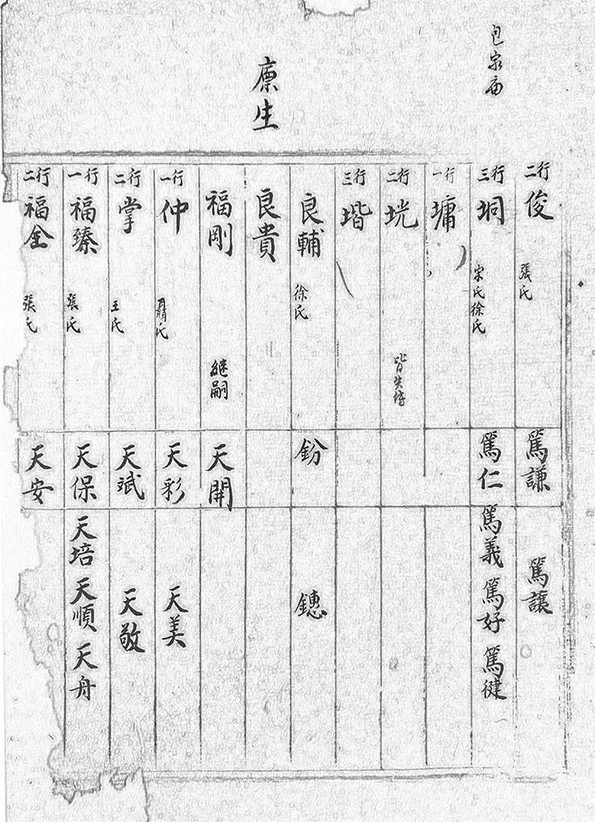 包家庙
廪生
二行 俊 張氏 篤謙 篤讓
三行 垌 宋氏徐氏 篤仁 篤義 篤好 篤健
一行 墉
二行 垙 皆失傳
三行 堦
良輔 徐氏 鈖 鏸
良貴
福剛 継嗣 天開
一行 仲 聶氏 天彩 天美
二行 掌 王氏 天斌 天敬
一行 福臻 張氏 天保 天培 天順 天舟
二行 福全 張氏 天安